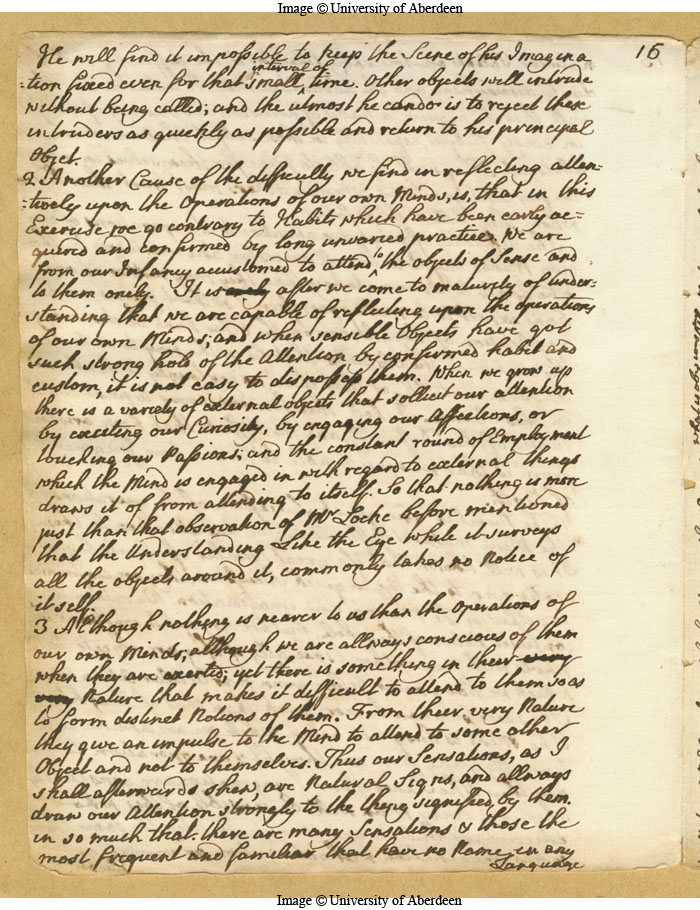 Image © University of Aberdeen
16
He will find it impossible to keep the Scene of his Imagina
interval of
:tion fixed even for that small ‸ time. Other objects will intrude
without being called; and the utmost he can do is to reject these
intruders as quickly as possible and return to his principal
Object.
2 Another Cause of the difficulty we find in reflecting atten-
:tively upon the Operations of our own Minds, is, that in this
Exercise we go contrary to Habits which have been early ac=
quired and confirmed by long unvaried practice. We are
to
from our Infancy accustomed to attend ‸ the objects of Sense and
to them only. It is only after we come to maturity of under=
standing that we are capable of reflecting upon the operations
of our own Minds; and when sensible Objects have got
such strong hold of the Attention by confirmed habit and
custom, it is not easy to dispossess them. When we grow up
there is a variety of external objects that sollicit our attention
by exciting our Curiosity, by engaging our Affections, or
touching our Passions; and the constant round of Employment
which the Mind is engaged in with regard to external things
draws it of from attending to itself. So that nothing is more
just than that observation of Mr Locke before mentioned
that the Understanding Like the Eye while it surveys
all the objects around it, commonly takes no Notice of
it self.
3 Although nothing is nearer to us than the Operations of
our own Minds; although we are allways conscious of them
when they are exerted; yet there is something in their very
very Nature that makes it difficult to attend to them so as
to form distinct Notions of them. From their very Nature
they give an impulse to the Mind to attend to some other
Object and not to themselves. Thus our Sensations, as I
shall afterwards shew, are Natural Signs, and allways
draw our Attention strongly to the thing signified by them.
in so much that there are many Sensations & those the
most frequent and familiar that have no Name in any
Language
Image © University of Aberdeen